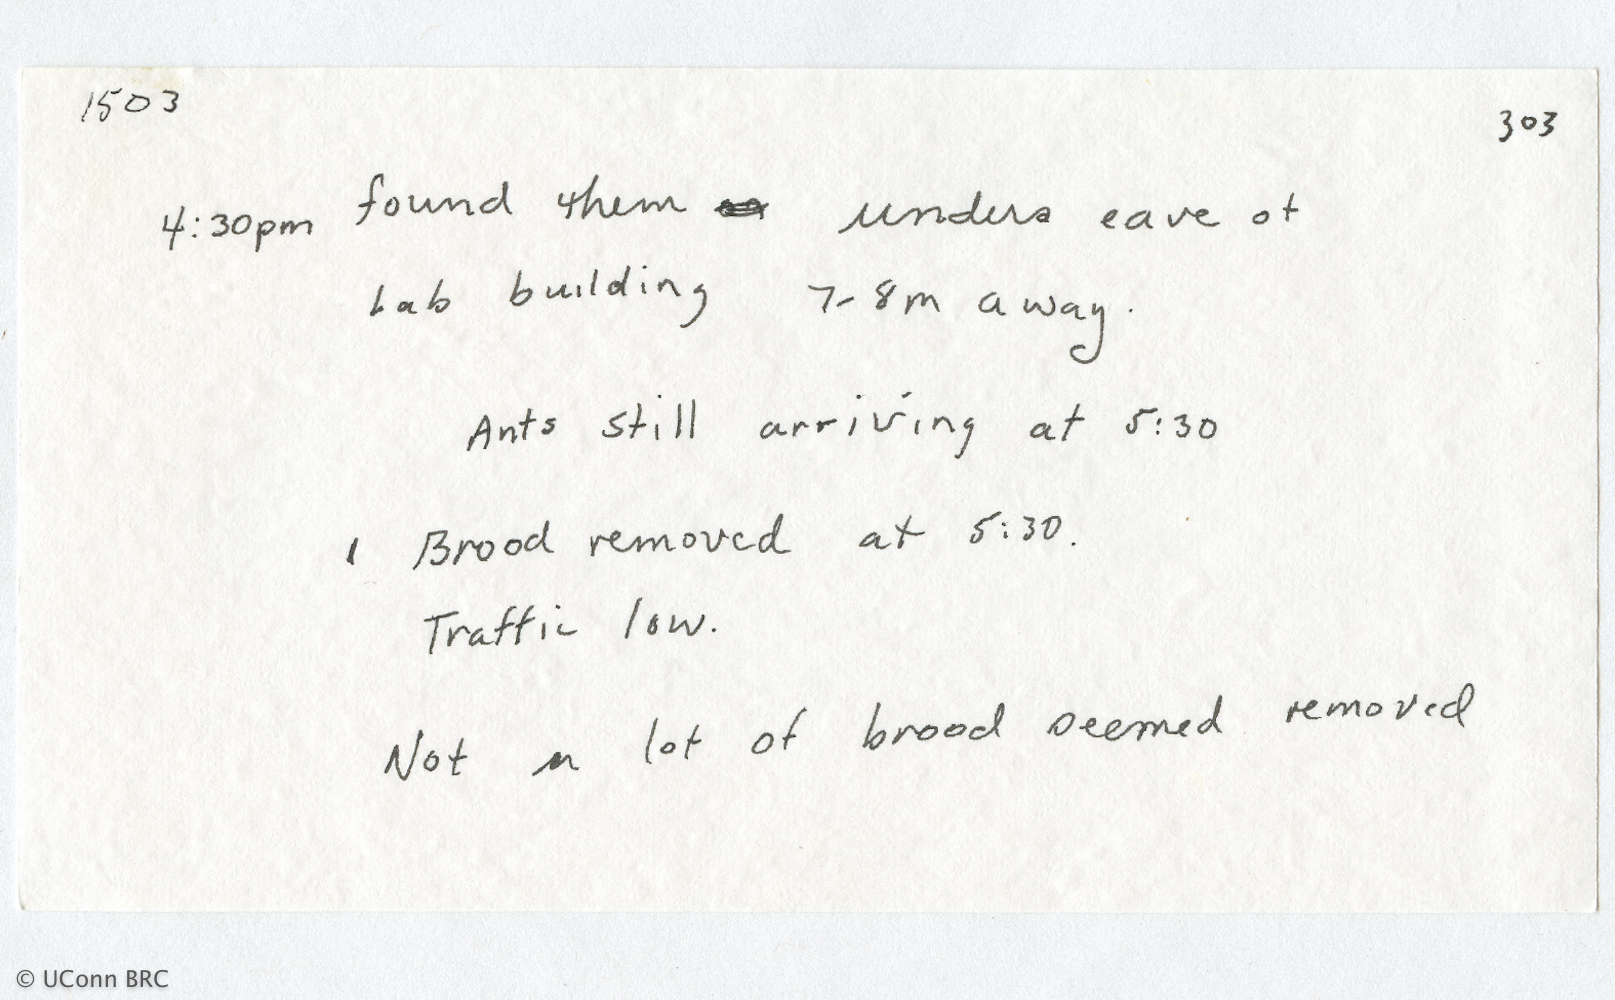 1503
303
4:30pm found them under a eave of
Lab building 7-8m away.
Ants still arriving at 5:30
1 Brood removed at 5:30.
Traffic low.
Not a lot of brood seemed removed
© UConn BRC